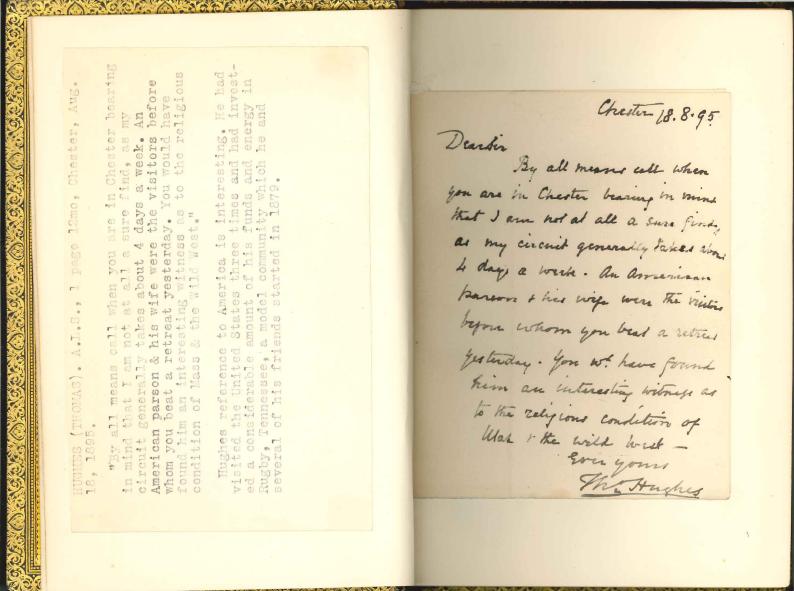 HUGHES (THOMAS). A.L.S., 1 page 12mo, Chester, Aug.
18, 1895.
"By all means call when you are in Chester bearing
in mind that I am not at all a sure find, as my
circuit generally takes about 4 days a week. An
American parson & his wife were the visitors before
whom you beat a retreat yesterday. You would have
found him an interesting witness as to the religious
condition of Mass & the wild West."
Hughes reference to America is interesting. He had
visited the United States three times and had invest-
ed a considerable amount of his funds and energy in
Rugby, Tennessee, a model community which he and
several of his friends started in 1879.
Chester 18.8.95
Dear Sir
By all means call when
you are in Chester bearing in mind
that I am not at all a sure find,
as my circuit generally takes about
4 days a week. An American
parson & his wife were the visitors
before whom you beat a retreat
yesterday. You wd. have found
him an interesting witness as
to the religious condition of
Utah & the wild West —
Ever yours
Thos Hughes